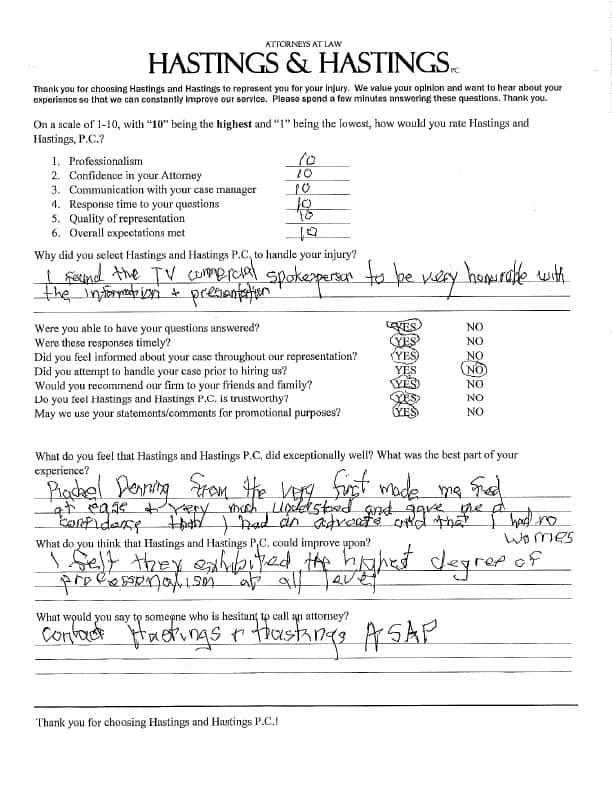 ATTORNEYS AT LAW
HASTINGS & HASTINGS PC
Thank you for choosing Hastings and Hastings to represent you for your injury. We value your opinion and want to hear about your
experience so that we can constantly improve our service. Please spend a few minutes answering these questions. Thank you.
On a scale of 1-10, with “10” being the highest and “1” being the lowest, how would you rate Hastings and
Hastings, P.C.?
1. Professionalism 10
2. Confidence in your Attorney 10
3. Communication with your case manager 10
4. Response time to your questions 10
5. Quality of representation 10
6. Overall expectations met 10
Why did you select Hastings and Hastings P.C. to handle your injury?
I found the TV commercial spokesperson to be very honorable with
the information + presentation
Were you able to have your questions answered? YES NO
Were these responses timely? YES NO
Did you feel informed about your case throughout our representation? YES NO
Did you attempt to handle your case prior to hiring us? YES NO
Would you recommend our firm to your friends and family? YES NO
Do you feel Hastings and Hastings P.C. is trustworthy? YES NO
May we use your statements/comments for promotional purposes? YES NO
What do you feel that Hastings and Hastings P.C. did exceptionally well? What was the best part of your
experience?
Rachel Denning from the very first made me feel
at ease + very much understood and gave me a
confidence that I had an advocate and that I had no
worries
What do you think that Hastings and Hastings P.C. could improve upon?
I felt they exhibited the highest degree of
professionalism at all level
What would you say to someone who is hesitant to call an attorney?
Contact Hastings + Hastings ASAP
Thank you for choosing Hastings and Hastings P.C.!